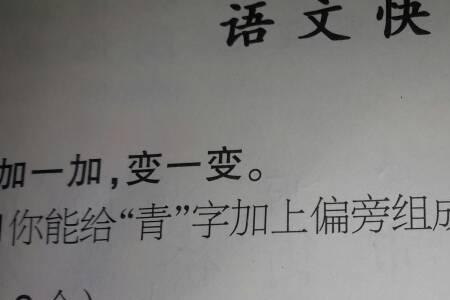 语文快
加一加，变一变。
你能给“青”字加上偏旁组成